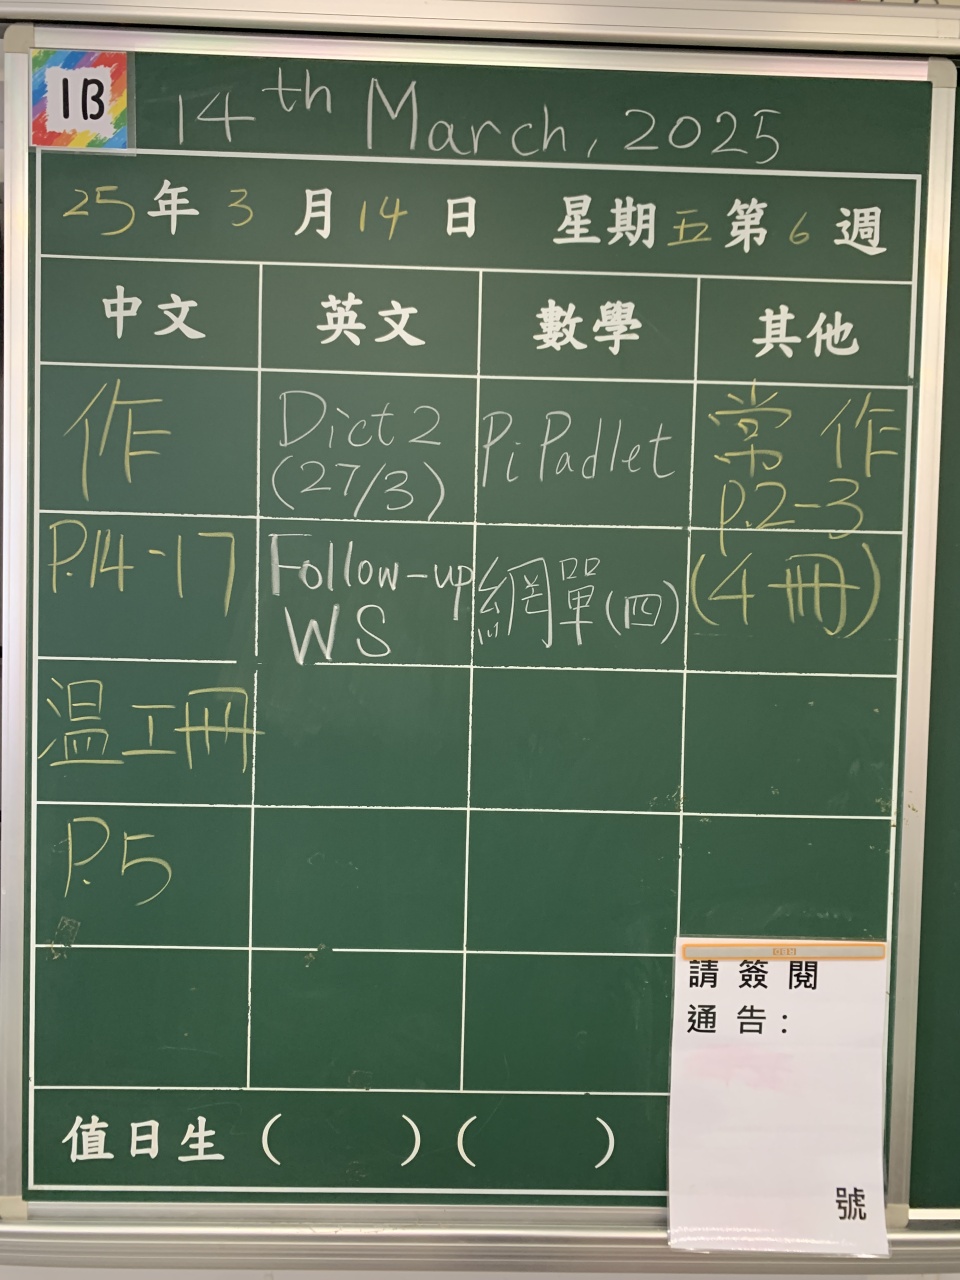 1B
14th March, 2025
25年3月14日 星期五第6週
中文 英文 數學 其他
作
P.14-17
温工冊
P.5
Dict 2
(27/3)
Follow-up
WS
Pi Padlet
網單(四)
常 作
p.2-3
(4冊)
請簽閱
通告:
號
值日生 ( ) ( )